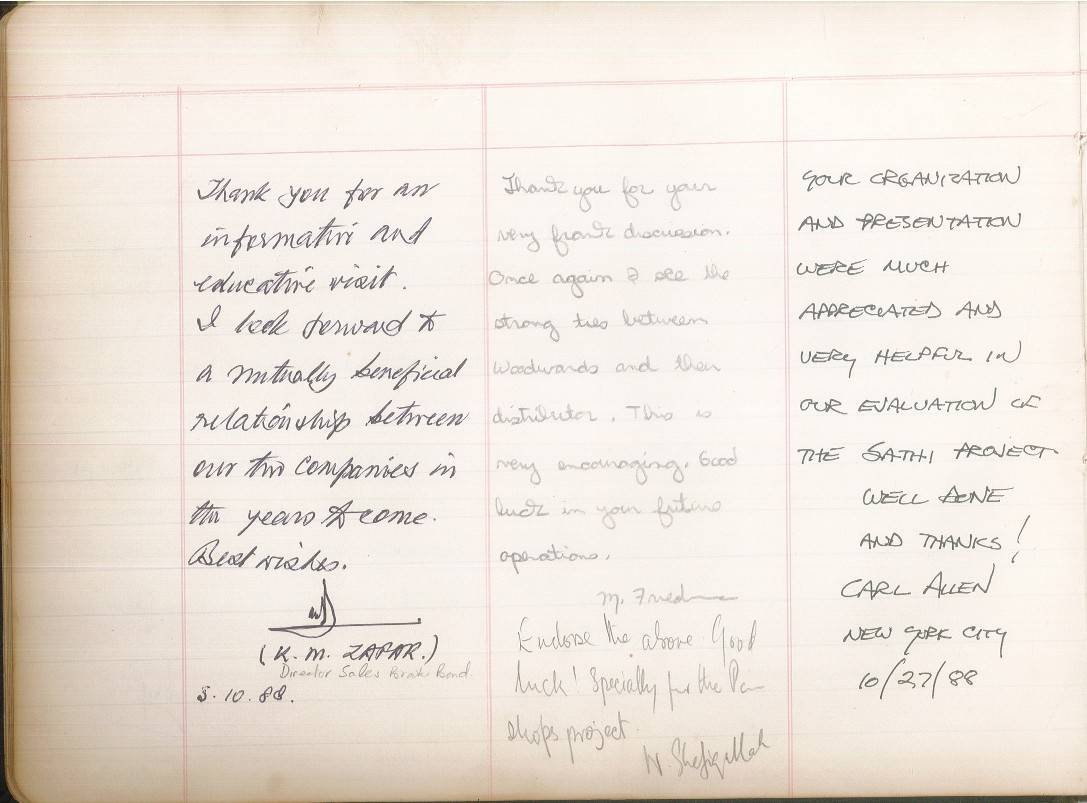 Thank you for an
informative and
educative visit.
I look forward to
a mutually beneficial
relationship between
our two companies in
the years to come.
Best wishes.
(K. M. ZAFAR.)
Director Sales Brooke Bond
5.10.88.
Thank you for your
very frank discussion.
Once again I see the
strong ties between
Woodwards and their
distributor. This is
very encouraging. Good
luck in your future
operations.
M.
Endorse the above Good
luck! Specially for the Pan
shops project
N. Shafiqullah
YOUR ORGANIZATION
AND PRESENTATION
WERE MUCH
APPRECIATED AND
VERY HELPFUL IN
OUR EVALUATION OF
THE SATHI PROJECT
WELL DONE
AND THANKS!
CARL ALLEN
NEW YORK CITY
10/27/88